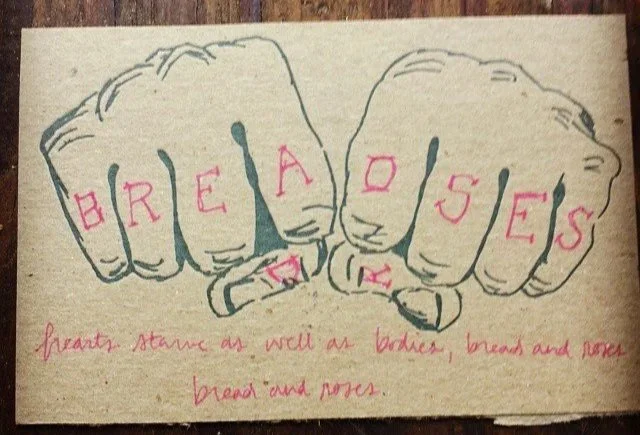 BREA OSES
D R
hearts starve as well as bodies, bread and roses
bread and roses.